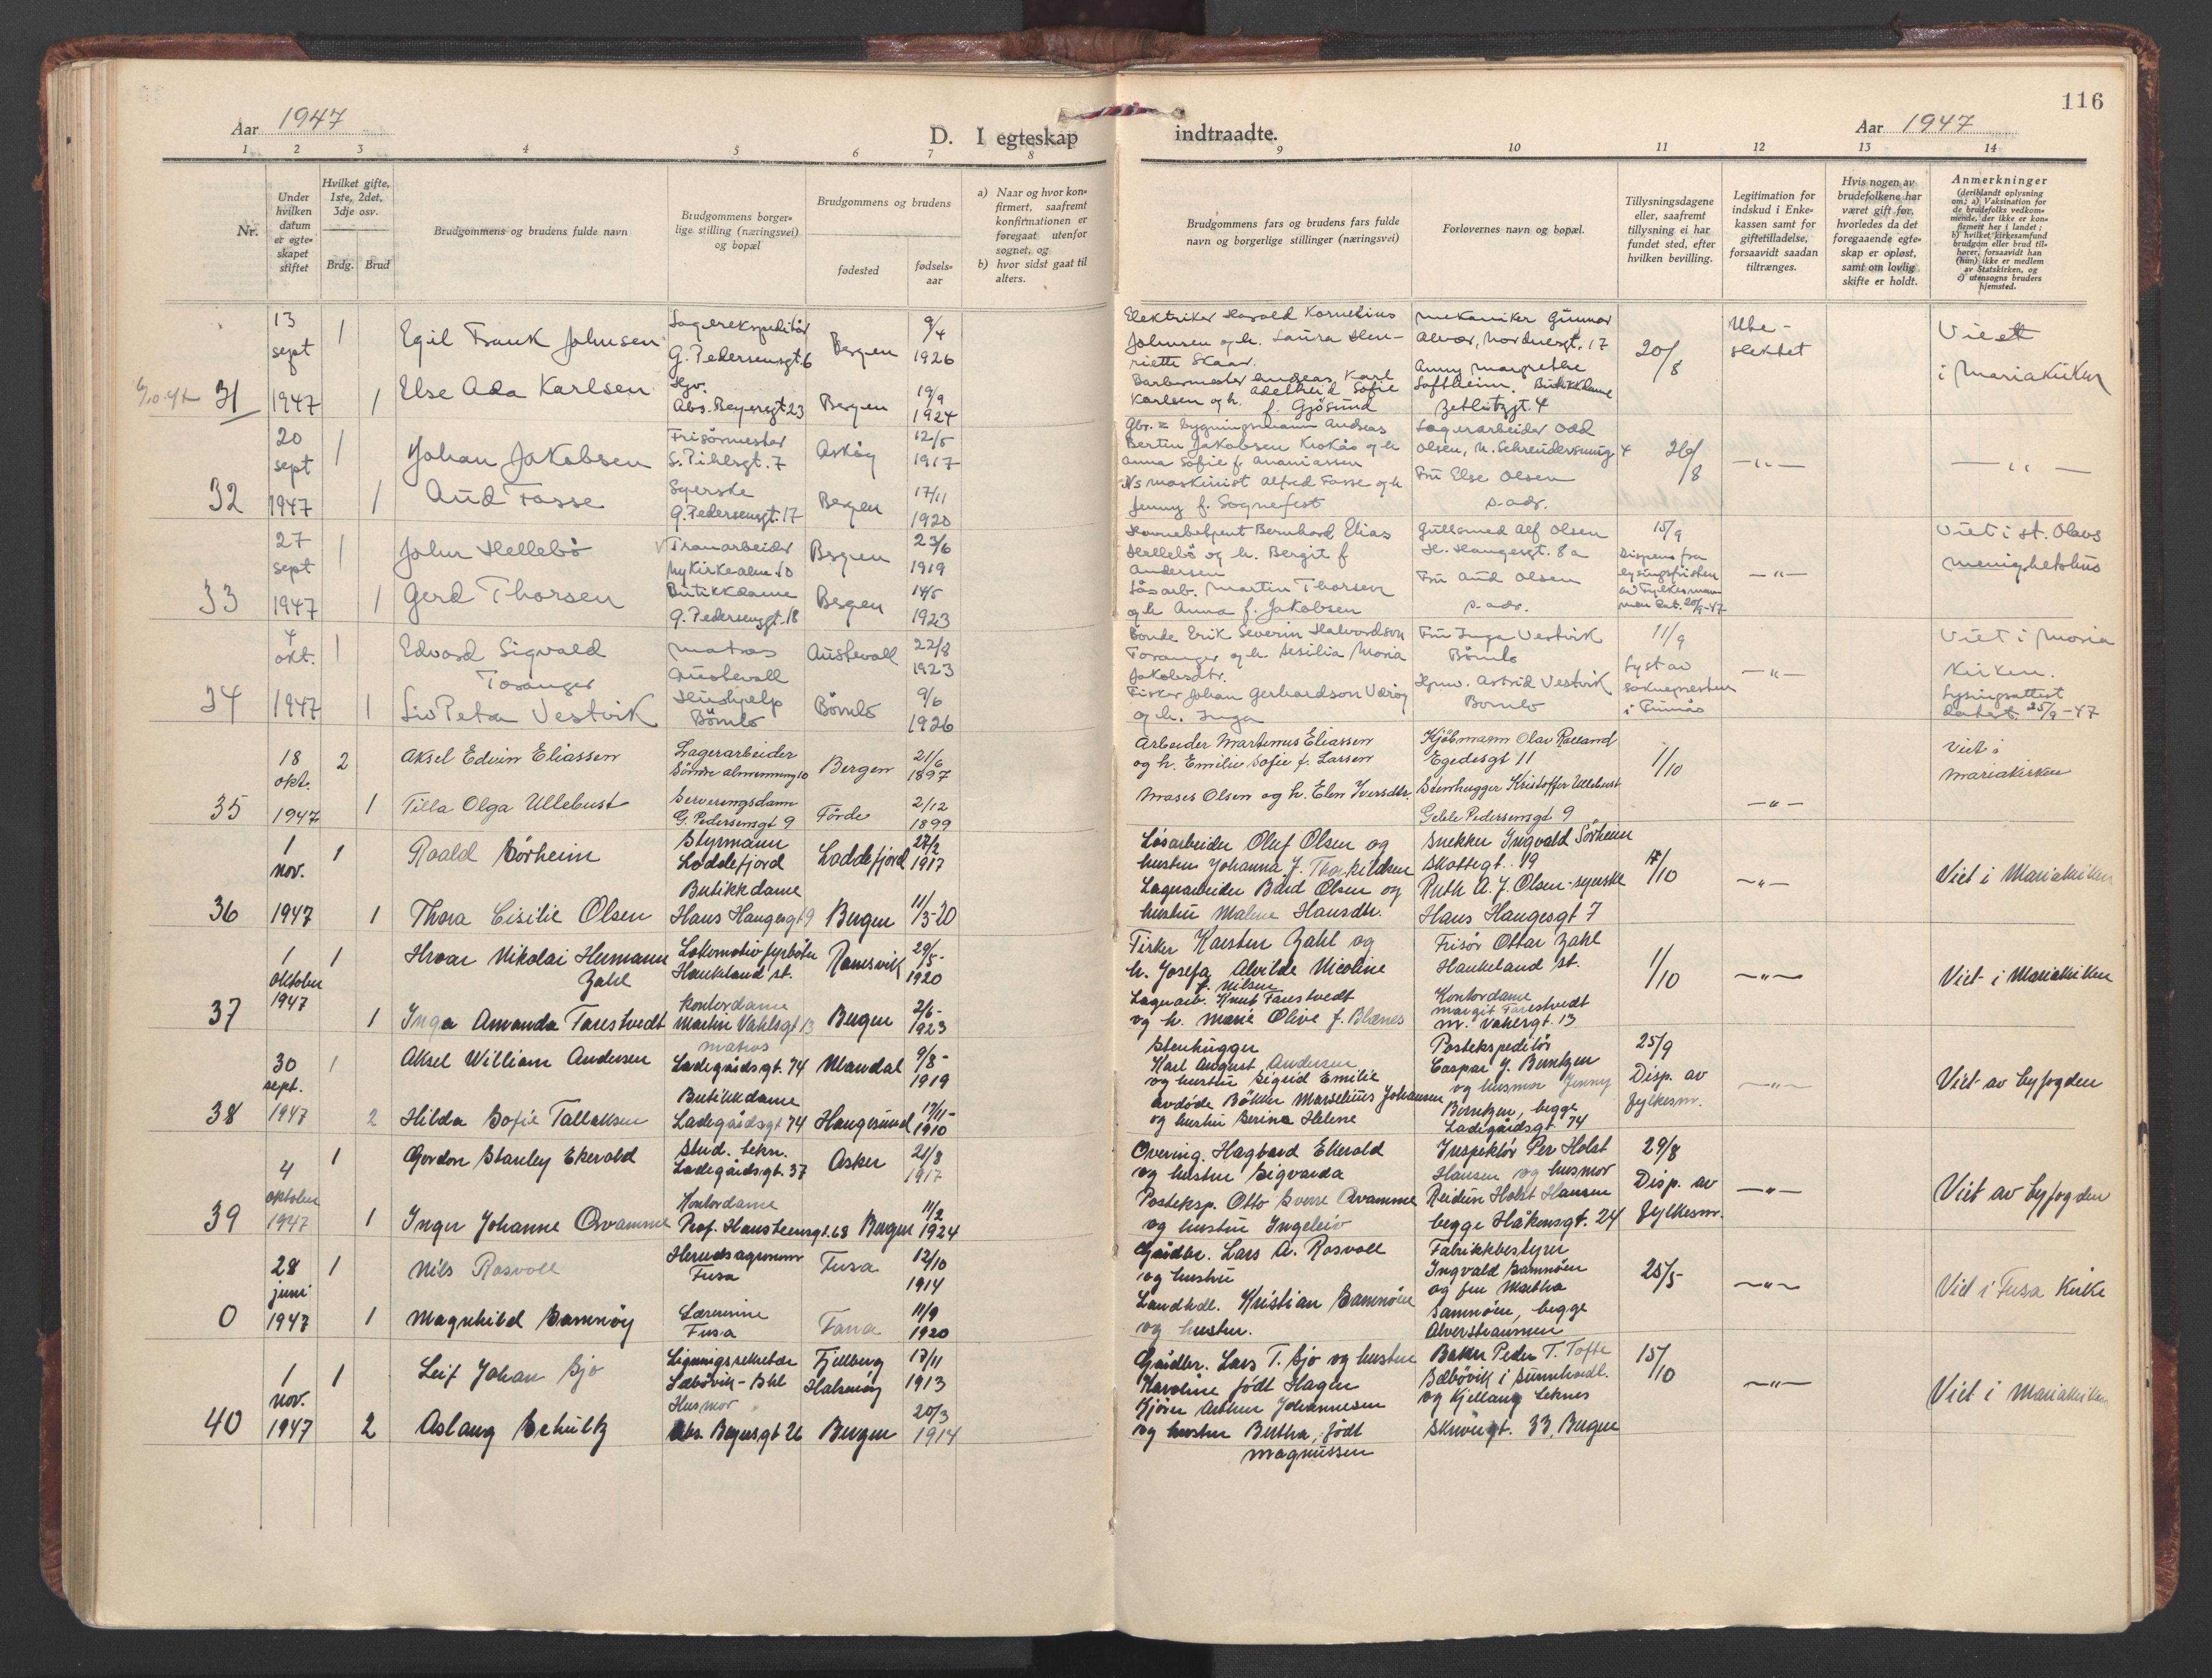 116
Aar 1947
D. I egteskap indtraadte.
Aar 1947
1 2 3 4 5 6 7 8 9 10 11 12 13 14
Nr.
Under hvilken datum er egteskapet stiftet
Hvilket gifte, 1ste, 2det, 3dje osv.
Brdg. Brud
Brudgommens og brudens fulde navn
Brudgommens borgerlige stilling (næringsvei) og bopæl
Brudgommens og brudens
fødested
fødselsaar
a) Naar og hvor konfirmert, saafremt konfirmationen er foregaat utenfor sognet, og
b) hvor sidst gaat til alters.
Brudgommens fars og brudens fars fulde navn og borgerlige stillinger (næringsvei)
Forlovernes navn og bopæl.
Tillysningsdagene eller, saafremt tillysning ei har fundet sted, efter hvilken bevilling.
Legitimation for indskud i Enkekassen samt for giftetilladelse, forsaavidt saadan tiltrænges.
Hvis nogen av brudefolkene har været gift før, hvorledes da det foregaaende egteskap er opløst, samt om lovlig skifte er holdt.
Anmerkninger
(deriblandt oplysning om: a) Vaksination for de brudefolks vedkommende, der ikke er konfirmert her i landet; b) hvilket kirkesamfund brudgom eller brud tilhører, forsaavidt han (hun) ikke er medlem av Statskirken, og c) utensogns bruders hjemsted.
31
13 sept 1947
1
Egil Frank Johnsen
Lagerekspeditör G. Pedersensgt. 6
Bergen
9/4 1926
Elektriker Harald Kornelius Johnsen og h. Laura Henriette Skaar.
Mekaniker Gunnar Alvær, Nordnesgt. 17
20/8
Ube-slektet
Viet i Mariakirken
1
Else Ada Karlsen
Hjv. Abs. Beyersgt 23
Bergen
19/9 1924
Barbermester Andreas Karl Karlsen og h. Adelheid Sofie f. Gjösund
Anny Margrethe Loftheim. Butikkdame Zetlitzgt. 4
32
20 sept 1947
1
Johan Jakobsen
Frisörmester S. Pihlsgt. 7
Asköy
12/5 1917
Gbr. = bygningsmann Andreas Bertin Jakobsen Krokås og h Anna Sofie f. Ananiassen
Lagerarbeider Odd Olsen, M. Schreudersmug 4
26/8
— " —
— " —
1
Aud Fasse
Syerske G. Pedersensgt. 17
Bergen
17/11 1920
Maskinist Alfred Fasse og h Jenny f. Sognefest
Fru Else Olsen s. adr.
33
27 sept 1947
1
John Hellebö
Tranarbeider Nykirkealm. 10
Bergen
23/6 1919
Havnebetjent Bernhard Elias Hellebö og h. Bergit f Andersen
Gullsmed Alf Olsen H. Haugesgt. 8 a
15/9 Dispens fra lysingsfristen av Fylkesmannen dat. 20/9-47
— " —
Viet i st. Olavs menighetshus
1
Gerd Thorsen
Butikkdame G. Pedersensgt. 18
Bergen
14/5 1923
Lösarb. Martin Thorsen og h Anna f. Jakobsen
Fru Aud Olsen s. adr.
34
4 okt. 1947
1
Edvard Sigvald Toranger
matros Austevoll
Austevoll
22/8 1923
Bonde Erik Severin Halvordson Toranger og h. Sesilia Maria Jakobsdtr.
Fru Inga Vestvik Bömlo
11/9 Lyst av soknepresten i Finnås
— " —
Viet i Maria kirken. Lysingsattest datert 25/9-47
1
Liv Petra Vestvik
Hushjelp Bömlo
Bömlo
9/6 1926
Fisker Johan Gerhardson Væröy og h. Inga
Hjmv. Astrid Vestvik Bömlo
35
18 okt. 1947
2
Aksel Edvin Eliassen
Lagerarbeider Söndre almenning 10
Bergen
21/6 1897
Arbeider Martinus Eliassen og h. Emilie Sofie f. Larsen
Kjöbmann Olav Rølland Egedesgt 11
1/10
— " —
Viet i Mariakirken
1
Tilla Olga Ullebust
Serveringsdame G. Pedersensgt 9
Förde
2/12 1899
Moses Olsen og h. Elen Iversdtr.
Stenhugger Kristoffer Ullebust Geble Pedersensgt 9
36
1 nov. 1947
1
Roald Sörheim
Styrmann Loddefjord
Loddefjord
27/2 1917
Lösarbeider Oluf Olsen og hustru Johanna f. Thorkildsen
Snekker Ingvald Sörheim Skottegt. 19
17/10
— " —
Viet i Mariakirken
1
Thora Cisilie Olsen
Butikkdame Hans Haugesgt 9
Bergen
11/3-20
Lagerarbeider Bård Olsen og hustru Malene Hansdtr.
Ruth A. J. Olsen - syerske Hans Haugesgt 7
37
1 oktober 1947
1
Hroar Nikolai Hermann Zahl
Lokomotiv fyrböter Haukeland st.
29/5-1920
Fisker Karsten Zahl og h. Josefa Alvilde Nicoline f. Nilsen
Frisör Ottar Zahl Haukeland st.
1/10
— " —
Viet i Mariakirken
1
Inga Amanda Farestvedt
Kontordame Martin Vahlsgt 13
Bergen
2/6-1923
Lagerarb. Knut Farestvedt og h. Marie Olive f. Blænes
Kontordame Margit Farestvedt M. Vahlsgt. 13
38
30 sept. 1947
1
Aksel William Andersen
matros Ladegårdsgt. 74
Mandal
9/8-1919
Stenhugger Karl August Andersen og hustru Sigrid Emilie
Postekspeditör Caspar J. Berntzen og husmor Jenny Berntzen, begge Ladegårdsgt. 74
25/9 Disp. av fylkesm.
— " —
Viet av byfogden
2
Hilda Sofie Tallaksen
Butikkdame Ladegårdsgt 74
Haugesund
17/11-1910
avdöde Bökker Marselius Johansen og hustru Serina Helene
39
4 oktober 1947
1
Gordon Stanley Ekerold
Stud. tekn. Ladegårdsgt. 37
Asker
21/8 1917
Overing. Hagbard Ekerold og hustru Sigvarda
Inspektör Per Holst Hansen og husmor Reidun Holst Hansen begge Håkonsgt. 24
29/8 Disp. av fylkesm.
— " —
Viet av byfogden
1
Inger Johanne Qvamme
Kontordame Prof. Hansteensgt. 68
Bergen
11/2 1924
Posteksp. Otto Sverre Qvamme og hustru Ingeleiv
0
28 juni 1947
1
Nils Rosvoll
Herredsagronom Fusa
Fusa
12/10 1914
Gårdbr. Lars A. Rosvoll og hustru
Fabrikkbestyrer Ingvald Samnöen og fru Martha Samnöen, begge Alverstraumen
25/5
— " —
Viet i Fusa Kirke
1
Magnhild Samnöy
Lærerinne Fusa
Fana
11/9 1920
Landhdl. Kristian Samnöen og hustru.
40
1 nov. 1947
1
Leif Johan Sjo
Ligningssekretær Sæbövik - Shl
Fjellberg Halsnöy
17/11 1913
Gårdbr. Lars T. Sjo og hustru Karoline födt Hagen
Baker Peder T. Tofte Sæbövik i Sunnhordl. og Kjellaug Leknes Skivegt. 33, Bergen
15/10
— " —
Viet i Mariakirken
2
Aslaug Schultz
Husmor Abs. Beyersgt 26
Bergen
20/3 1914
Kjörer Arthur Johannesen og hustru Bertha, födt Magnussen